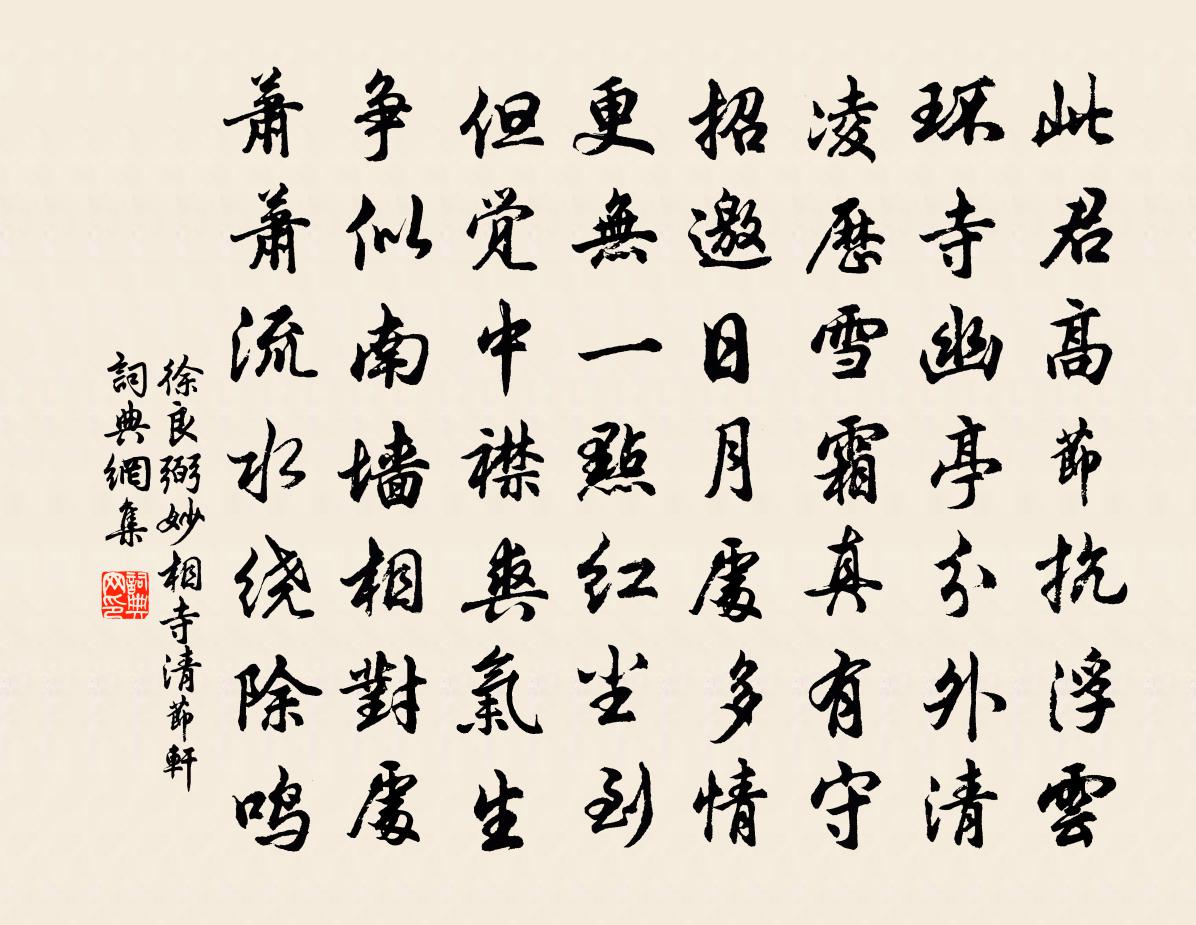 此君高節抗浮雲
琛寺幽亭分外清
凌歷雪霜真有守
招邀日月處多情
更無一點红尘到
但覚中襟爽氣生
争似南墙相對處
蕭蕭流水绕除鸣
徐良弼妙相寺清節軒
詞典網集
詞典网印